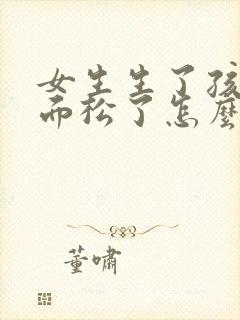 女生生了孩
而松了怎麼
董嘯